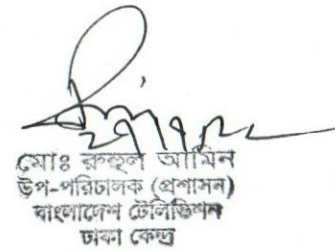 মোঃ রুহুল আমিন
উপ-পরিচালক (প্রশাসন)
বাংলাদেশ টেলিভিশন
ঢাকা কেন্দ্র